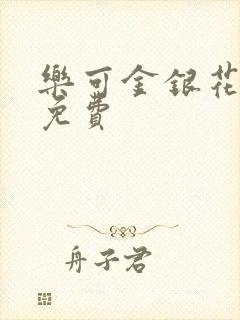 樂可金銀花
免費
舟子君